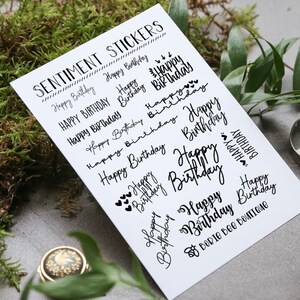 SENTIMENT STICKERS
Happy Birthday
Happy Birthday
Happy
Birthday
HAPPY BIRTHDAY
Happy
Birthday
Happy BIRTHDAY
Happy Birthday
Happy Birthday
Happy Birthday
Happy
Birthday
Happy Birthday
Happy
Birthday
HAPPY
BIRTHDAY
Happy
Birthday
Happy
Birthday
Happy
Birthday
Happy
Birthday
DORIE DEE BOUTIQUE